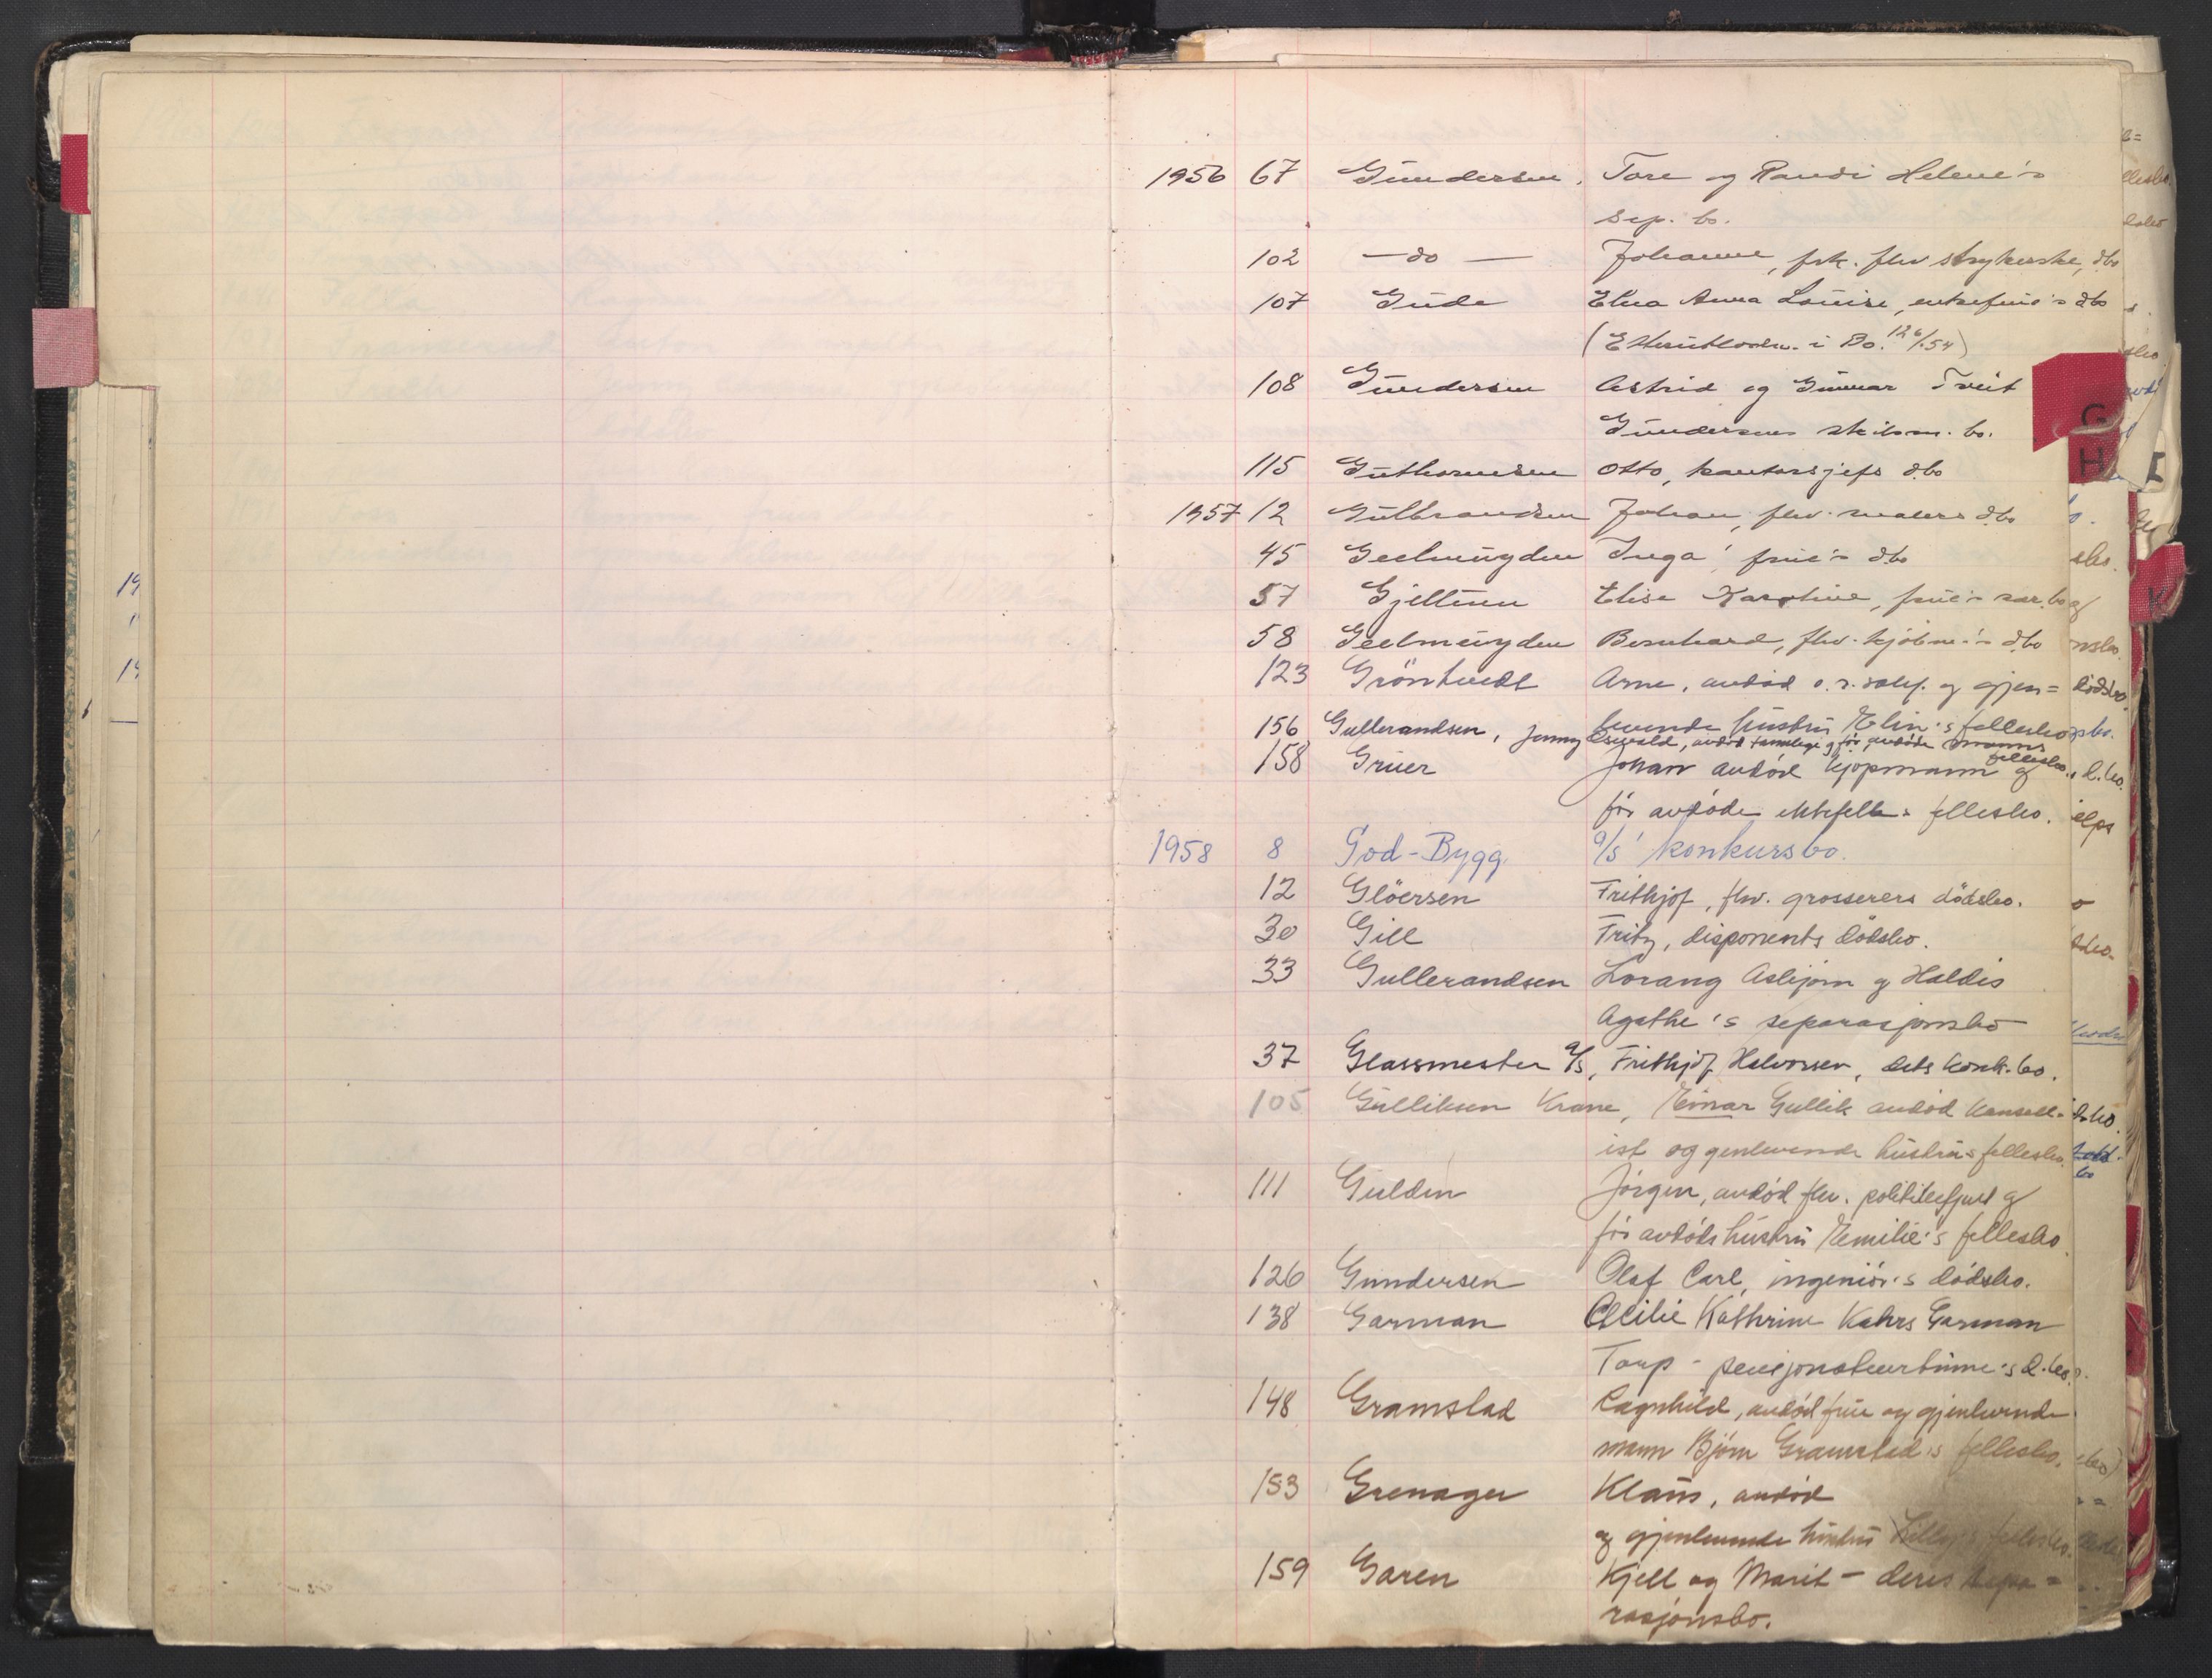 1956 67 Gundersen, Tore og Randi Helene's
sep. bo.
102 —do— Johanne, frk. fhv strykerske, dbo
107 Gude Elna Anna Louise, enkefrue's dbo
(Etterutlodn. i Bo. 126/54)
108 Gundersen Astrid og Gunnar Tveit
Gundersens skilsm. bo.
115 Guthormsen Otto, kontorsjefs dbo
1957 12 Gulbrandsen Johan, fhv. malers dbo
45 Geelmuyden Inga, frue's dbo
57 Gjeltnen Elise Karoline, frue's
58 Geelmuyden Bernhard, fhv. kjøbm.'s dbo
123 Grönhvedt Arne, avdød o.r.sakf. og gjen=
levende hustru Elin's fellesbo
156 Gulbrandsen, Jenny Oswald, avdød tannlege og før avdøde manns
fellesbo.
158 Gruer Johan avdød kjøpmann og
før avdøde ektefelles fellesbo.
1958 8 God-Bygg. a/s' konkursbo.
12 Glöersen Frithjof, fhv. grosserers dödsbo.
30 Gill Fritz, disponents dödsbo.
33 Gulbrandsen Lorang Asbjørn og Haldis
Agathe's separasjonsbo
37 Glassmester a/s, Frithjof Halvorsen, dets konk.bo.
105 Gulliksen Krane, Einar Gullik avdød kansell-
ist og genlevende hustrus fellesbo.
111 Gulden Jörgen, avdød fhv. politibetjent og
før avdøde hustru Emilie's fellesbo
126 Gundersen Olaf Carl, ingeniör's dödsbo.
138 Garman Cecilie Kathrine Kahrs Garman
Torp - pensjonatvertinne's d.bo.
148 Gramstad Ragnhild, avdød frue og gjenlevende
mann Bjørn Gramstad's fellesbo.
153 Grenager Klaus, avdød
og gjenlevende hustru Lilly's fellesbo.
159 Garen Kjell og Marit - deres sepa=
rasjonsbo.
G
H
I
K